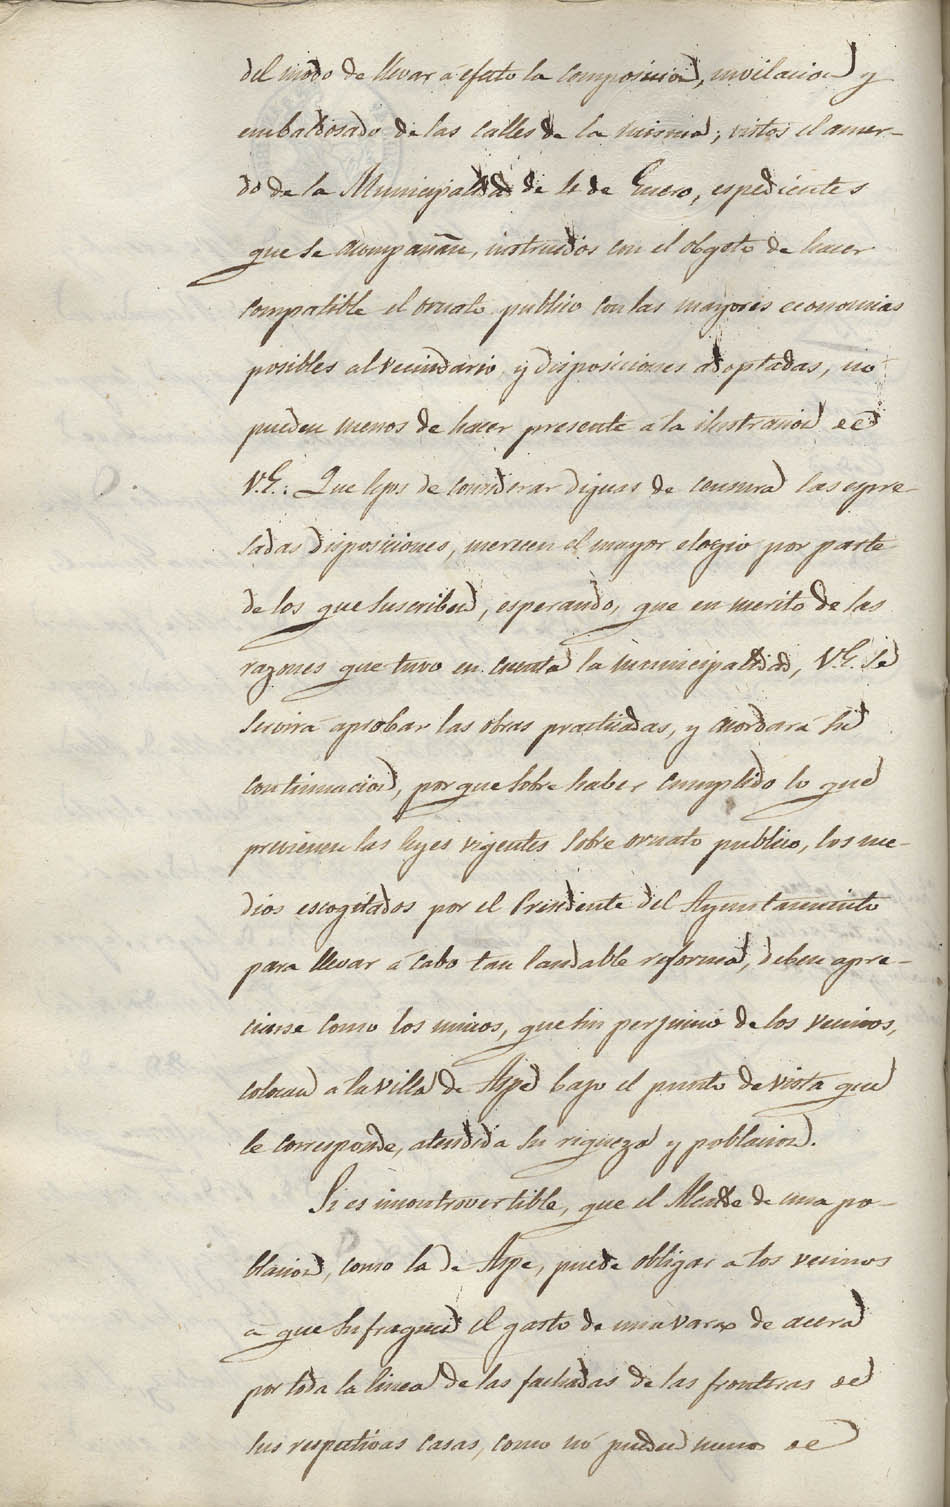 del modo de llevar á efecto la composicion, nivelacion y
embaldosado de las calles de la misma; vistos el acuer-
do de la Municipalidad de 4 de Enero, espedientes
que se acompañan, instruidos con el obgeto de hacer
compatible el ornato publico con las mayores economias
posibles al vecindario, y disposiciones adoptadas, no
pueden menos de hacer presente á la ilustracion de
V.E.: Que lejos de considerar dignas de censura las espre-
sadas disposiciones, merecen el mayor elogio por parte
de los que suscriben, esperando, que en merito de las
razones que tuvo en cuenta la municipalidad, V.E. se
servirá aprobar las obras practicadas, y acordará su
continuacion, por que sobre haber cumplido lo que
previenen las leyes vigentes sobre ornato publico, los me-
dios escogitados por el Presidente del Ayuntamiento
para llevar á cabo tan laudable reforma, deben apre-
ciarse como los unicos, que sin perjuicio de los vecinos,
colocan a la villa de Aspe bajo el punto de vista que
le corresponde, atendida su riqueza y poblacion.
Si es incontrovertible, que el Alcalde de una po-
blacion, como la de Aspe, puede obligar a los vecinos
á que sufraguen el gasto de una vara de acera
por toda la linea de las fachadas de las fronteras de
sus respectivas casas, como no pueden menos de